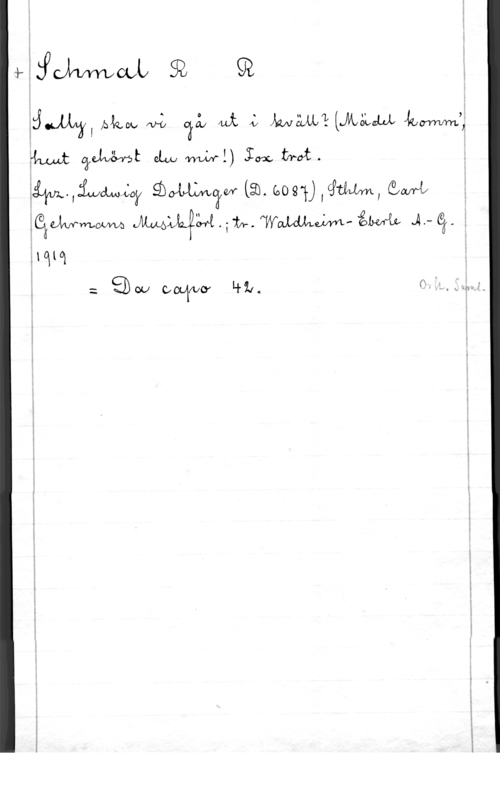 + Schmal R R
Sally, ska vi gå ut i kväll? (Mädel komm',
heut gehörst du mir!) Fox trot.
Lpz., Ludwig Doblinger (D. 6087), Sthlm, Carl
Gehrmans Musikförl.; tr. Waldheim-Eberle A.-G.
1919
= Da capo 42. Ork. Saml.